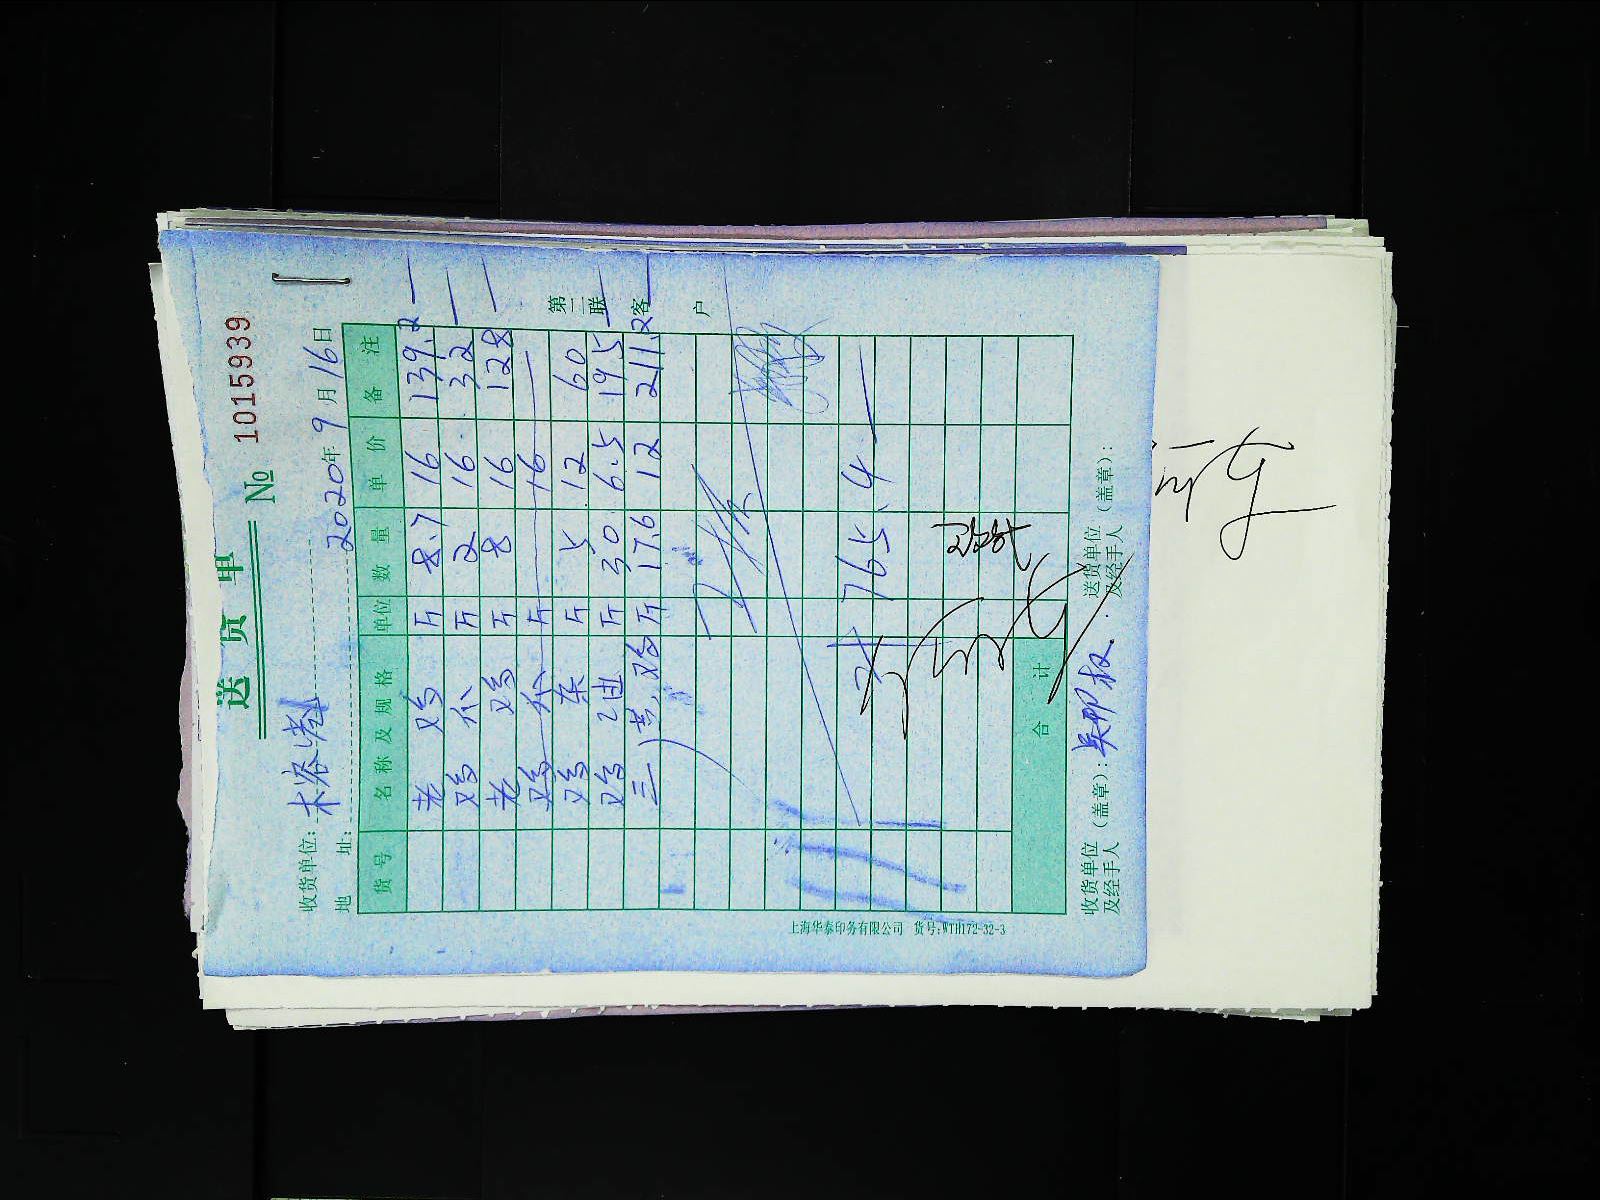 送货单
№ 1015939
收货单位:
2020年9月16日
地 址:
货号 名称及规格 单位 数量 单价 备注
老鸡 斤 8.7 16 139.2
鸡 斤 2 16 32
老鸡 斤 8 16 128
鸡 斤 16
鸡 斤 5 12 60
鸡 斤 30 6.5 195
三黄鸡 斤 17.6 12 211.2
计 765.4
合计
收货单位及经手人(盖章): 送货单位及经手人(盖章):
第二联 客户
上海华泰印务有限公司 货号:WTH172-32-3